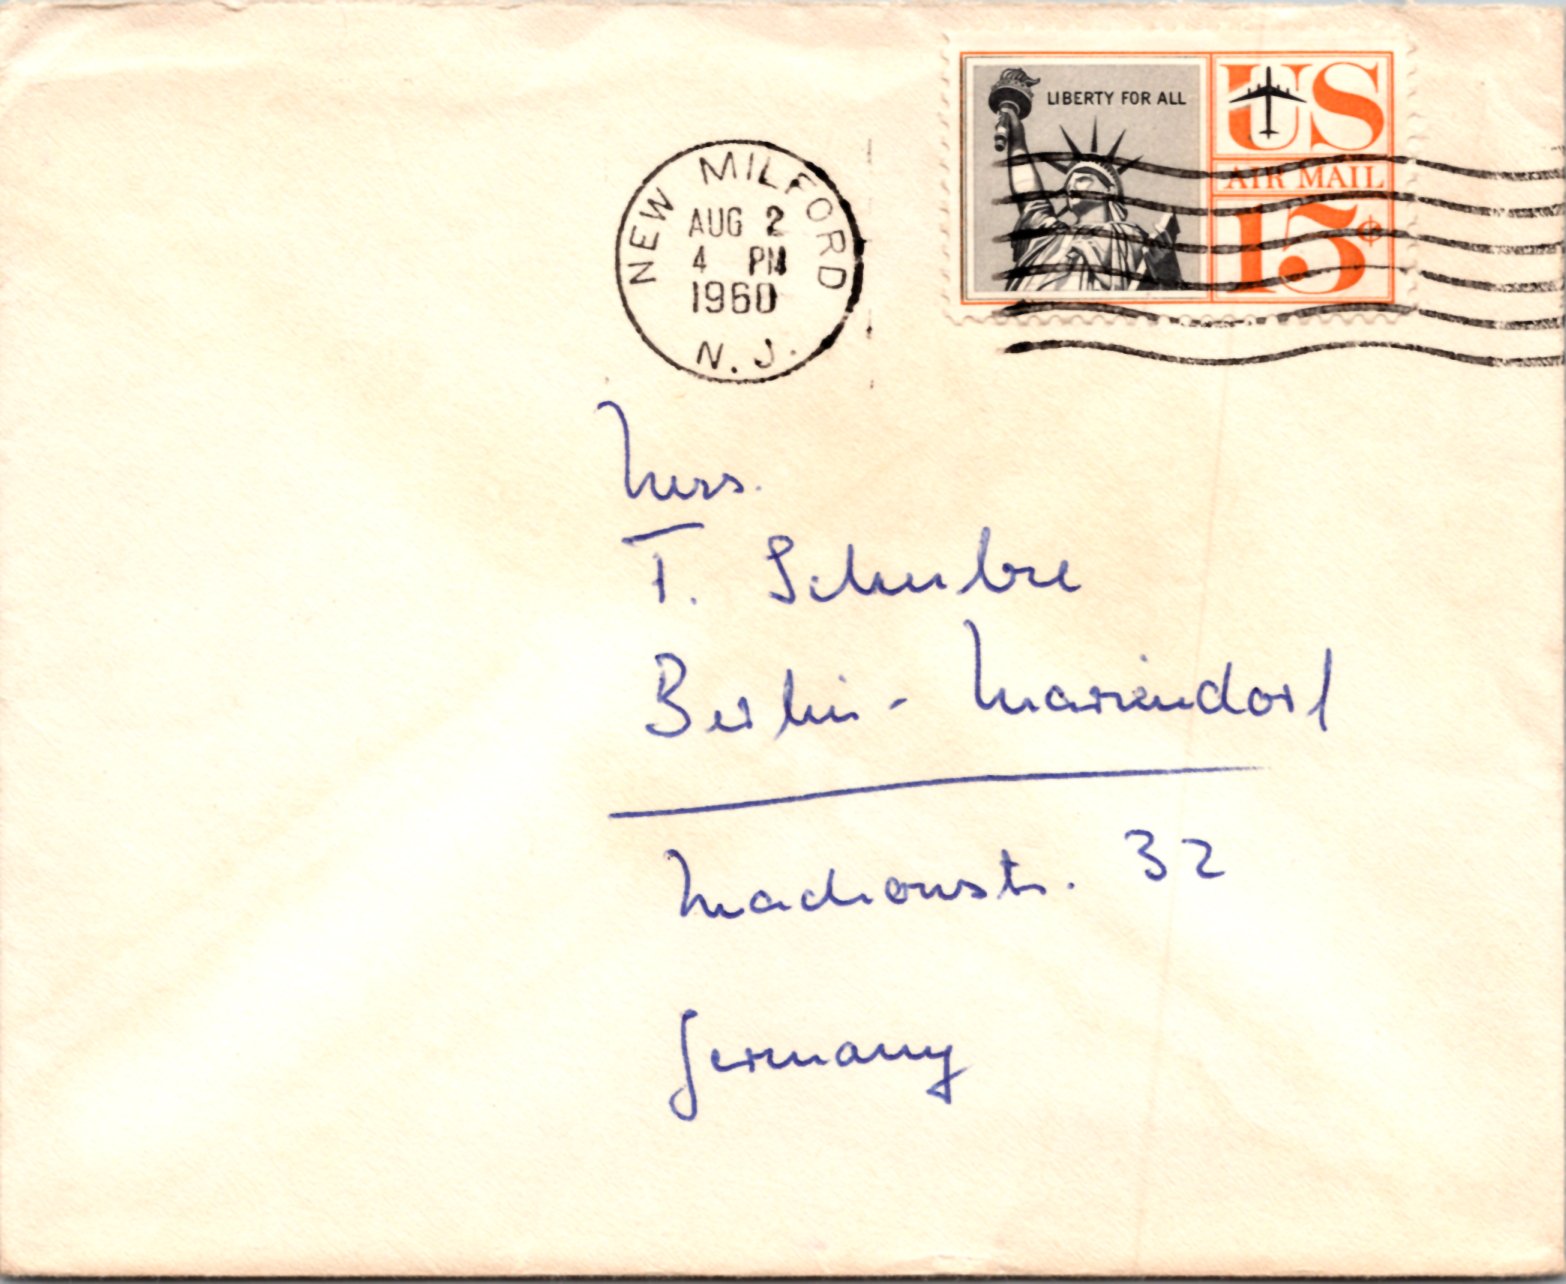 LIBERTY FOR ALL
US
AIR MAIL
15¢
NEW MILFORD
AUG 2
4 PM
1960
N.J.
Mrs.
T. Schubre
Berlin - Mariendorf
32
Germany